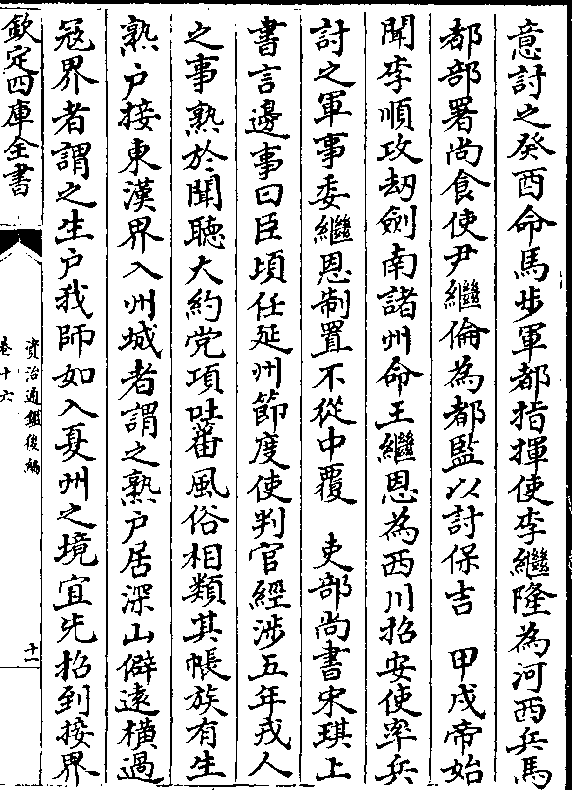 意討之癸酉命馬步軍都指揮使李繼隆為河西兵馬
都部署尚食使尹繼倫為都監以討保吉　甲戌帝始
聞李順攻劫劍南諸州命王繼恩為西川招安使率兵
討之軍事委繼恩制置不從中覆　吏部尚書宋琪上
書言邊事曰臣頃任延州節度使判官經涉五年戎人
之事熟於聞聽大約党項吐蕃風俗相類其帳族有生
熟户接東漢界入州城者謂之熟户居深山僻遠橫過
冦界者謂之生户我師如入夏州之境宜先招到接界
欽定四庫全書
資治通鑑後編
卷十六
十一